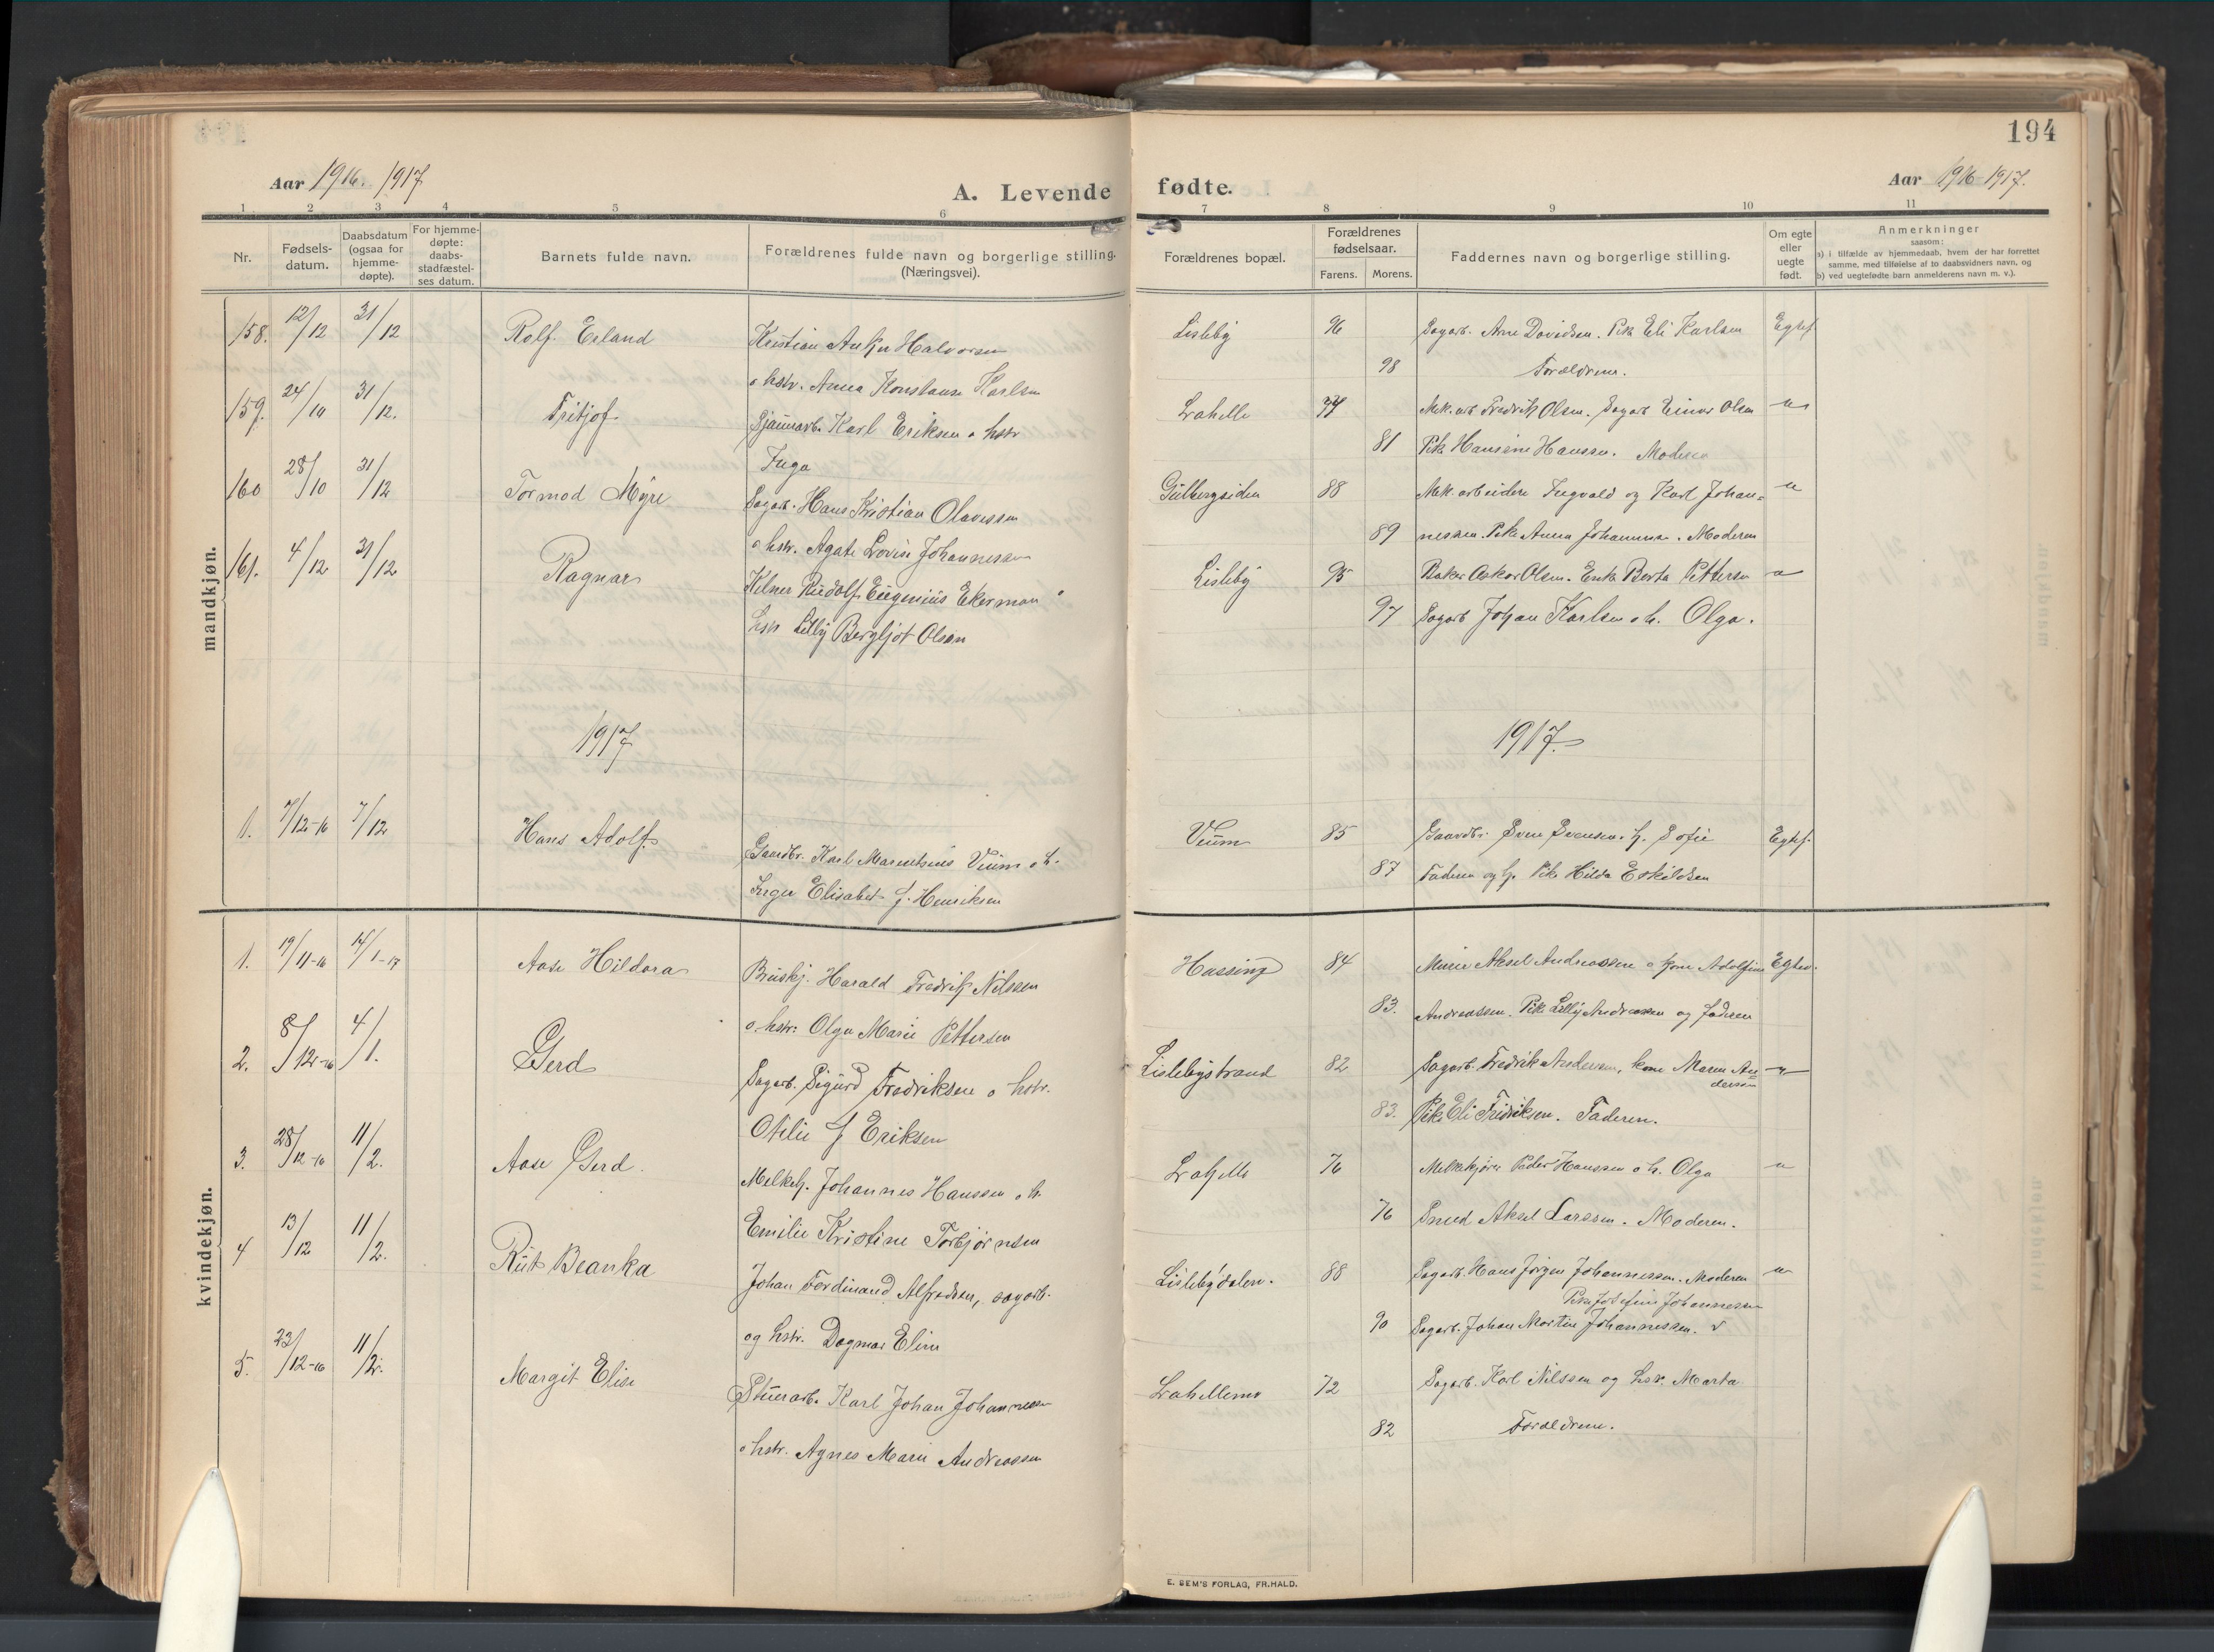 194
Aar 1916. 1917
A. Levende fødte.
Aar 1916-1917.
1 2 3 4 5 6 7 8 9 10 11
Nr.
Fødsels-
datum.
Daabsdatum
(ogsaa for
hjemme-
døpte).
For hjemme-
døpte:
daabs-
stadfæstel-
ses datum.
Barnets fulde navn.
Forældrenes fulde navn og borgerlige stilling.
(Næringsvei).
Forældrenes bopæl.
Forældrenes
fødselsaar.
Farens. Morens.
Faddernes navn og borgerlige stilling.
Om egte
eller
uegte
født.
Anmerkninger
saasom:
a) i tilfælde av hjemmedaab, hvem der har forrettet
samme, med tilføielse af to daabsvidners navn, og
b) ved uegtefødte barn anmelderens navn m. v.).
mandkjøn.
158. 12/12 31/12 Rolf Erland Kristian Anker Halvorsen Lisleby 96 Sagarb. Arne Davidsen. Pik Eli Karlsen Egtef
o hstr. Anna Konstanse Karlsen 98 Forældrene.
159. 24/10 31/12. Fritjof Karl Eriksen o hstr Lahelle 77 Mek. arb Fredrik Olsen. Sagarb Einar Olsen —"—
Inga 81 Pik Hansine Hansen. Moderen
160 28/10 31/12 Tormod Myre Sagarb. Hans Kristian Olavessen Gulbergsiden 88 Mek. arbeidere Ingvald og Karl Johan= —"—
o hstr. Agate Lovise Johannessen 89 nessen. Pike Anna Johannesen. Moderen
161. 4/12 31/12 Ragnar Kelner Rudolf Eugenius Ekerman o Lisleby 95 Baker Oskar Olsen. Enke Berta Pettersen —"—
hstr Lilly Bergljot Olsen 97 Sagarb Johan Karlsen o h. Olga.
1917 1917.
1. 7/12-16 7/12 Hans Adolf Gaardbr. Karl Marentsius Veum o h. Veum 85 Gaardbr. Sven Svensen. h. Sofie Egtef.
Inger Elisabet f. Henriksen 87 Faderen og h. Pike Hilda Eskildsen
kvindekjøn.
1. 19/11-16 14/1-17 Aase Hildora Bruskj. Harald Fredrik Nilssen Hassing 84 Murer Aksel Andreassen o kone Adolfine Egtef.
o. hstr. Olga Marie Pettersen 83. Andreassen. Pike Lilly Andreassen og faderen
2. 8/12-16 4/1. Gerd Sagarb. Sigurd Fredriksen o hstr. Lislebystrand 82 Sagarb. Fredrik Andersen, kone Maren An=
dersen —"—
Otelie f Eriksen 83. Pike Eli Fredriksen. Faderen.
3. 28/12-16 11/2. Aase Gerd. Melkekj. Johannes Hanssen o h. Lahelle 76 Melkekjører Peder Hanssen o h. Olga —"—
Emilie Kristine Torbjørnsen 76 Smed Aksel Larssen. Moderen.
4 13/12 11/2. Rut Beanka Johan Ferdinand Alfredsen, sagarb. Lislebydalen. 88 Sagarb. Hans Jørgen Johannessen. Moderen —"—
Pike Josefine Johannessen
og hstr. Dagmar Eline 90 Sagarb. Johan Martin Johannessen. v
5. 23/12-16 11/2. Margit Elise Stuerarb. Karl Johan Johannessen Lahellemo 72 Sagarb. Karl Nilssen og hstr. Marta
o hstr. Agnes Marie Andreassen 82 Forældrene.
E. SEM'S FORLAG, FR.HALD.